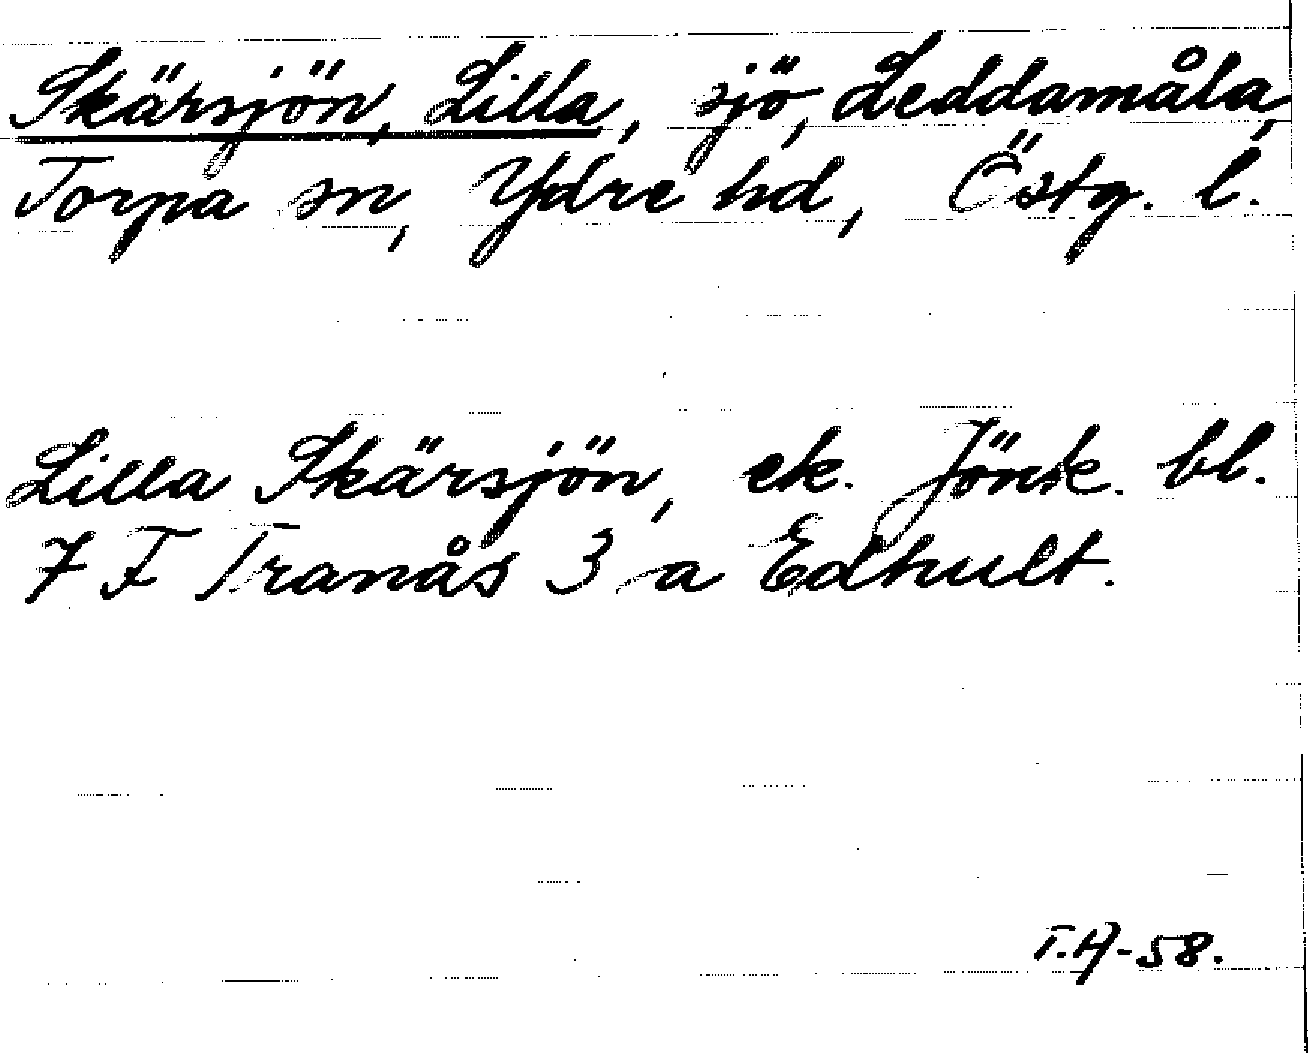 Skärsjön, Lilla, sjö, Leddamåla,
Torpa sn, Ydre hd, Östg. l.
Lilla Skärsjön, ek. Jönk. bl.
7 F Tranås 3 a Edhult.
T.A-58.